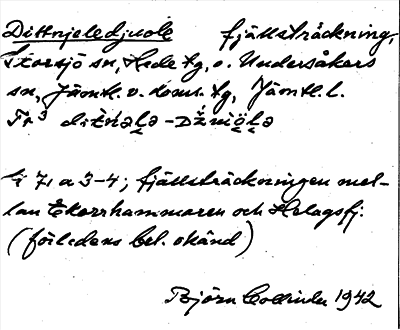 Dittnjeledjuole fjällsträckning,
Storsjö sn, Hede tg, o. Undersåkers
sn, Jämtl. v. doms. tg, Jämtl. l.
Fr³
G 71 a 3-4; fjällsträckningen mel-
lan Ekorrhammaren och Helagsfj.
(förledens bet. okänd)
Björn Collinder 1942